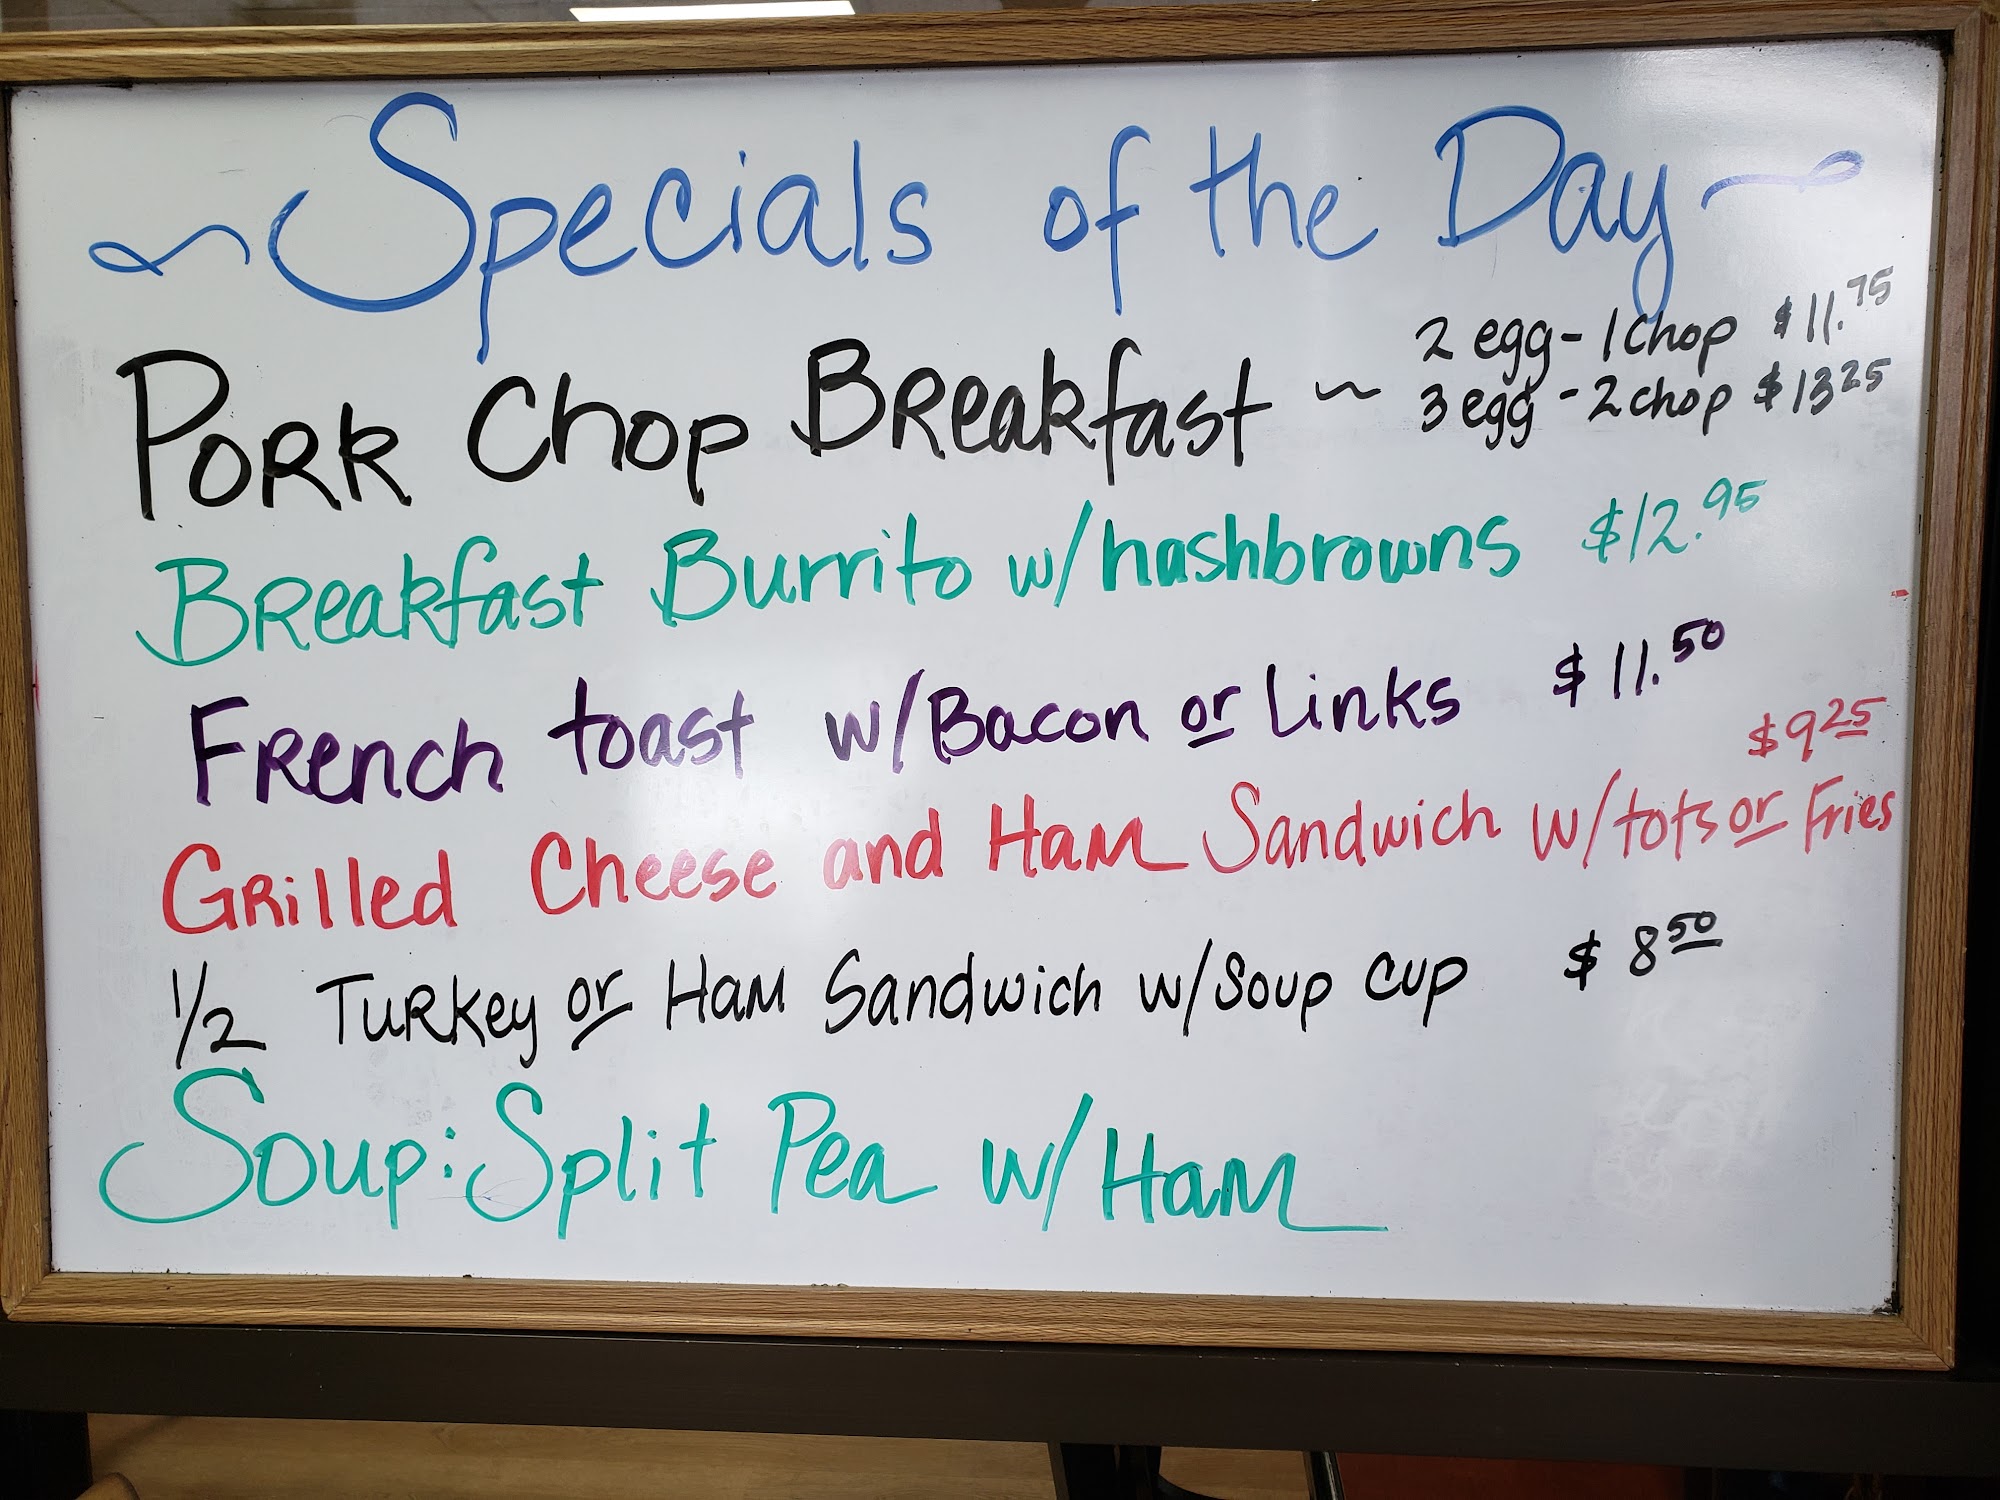 ~Specials of the Day~
Pork Chop Breakfast ~ 2 egg - 1 chop $11.75
3 egg - 2 chop $13 25
Breakfast Burrito w/hashbrowns $12.95
French toast w/Bacon or Links $11.50
$9 25
Grilled Cheese and Ham Sandwich w/tots or Fries
1/2 Turkey or Ham Sandwich w/Soup Cup $8 50
Soup: Split Pea w/Ham